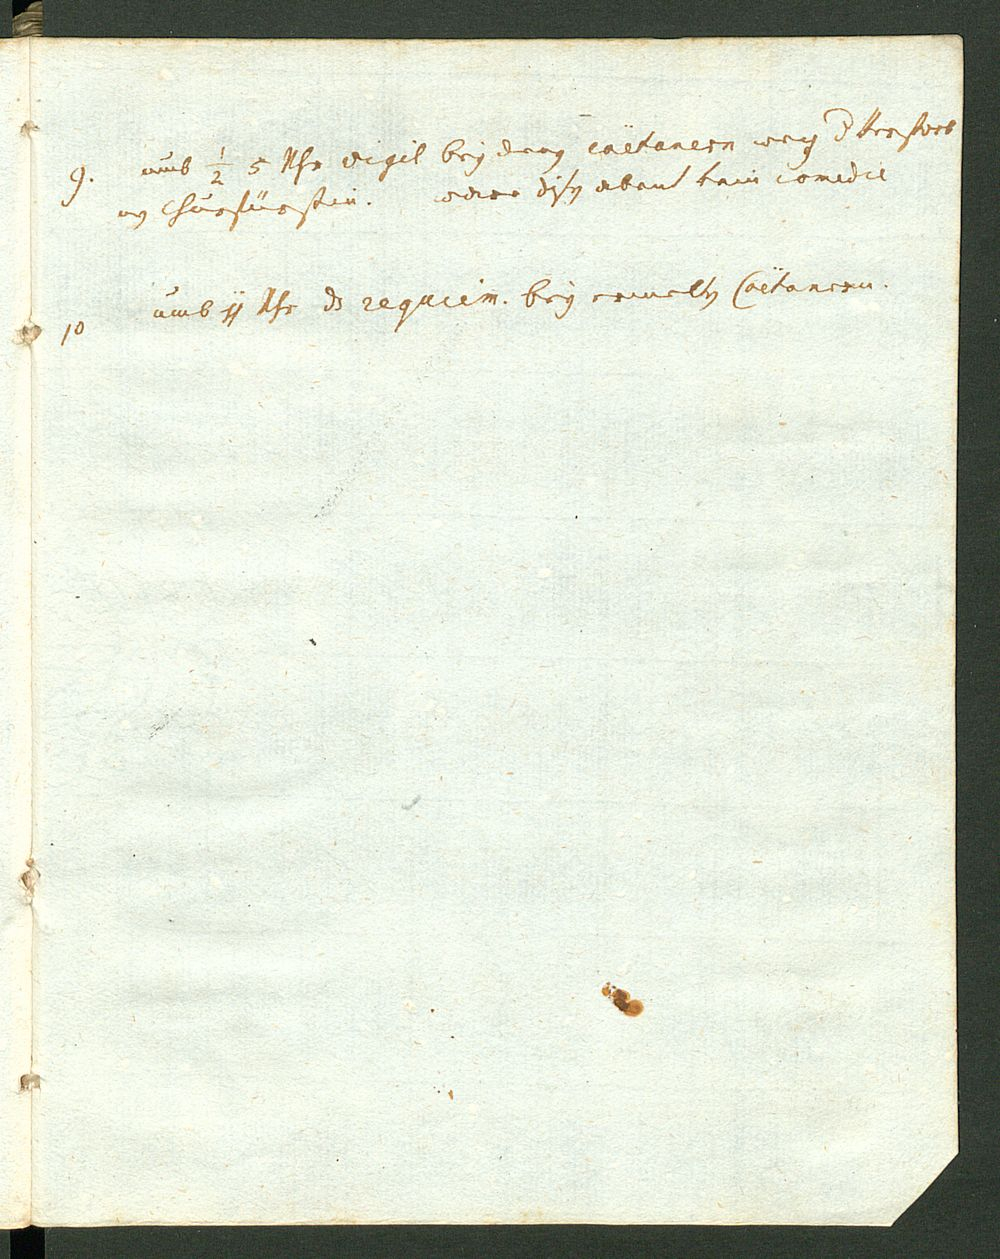 9. umb ½ 5 Uhr vigil bey denen Caëtanern wegen d Verstorb
nen Churfürstin. ware dise abent kein comedie
10 umb 11 Uhr ds requiem. bey ermelten Caëtanern.